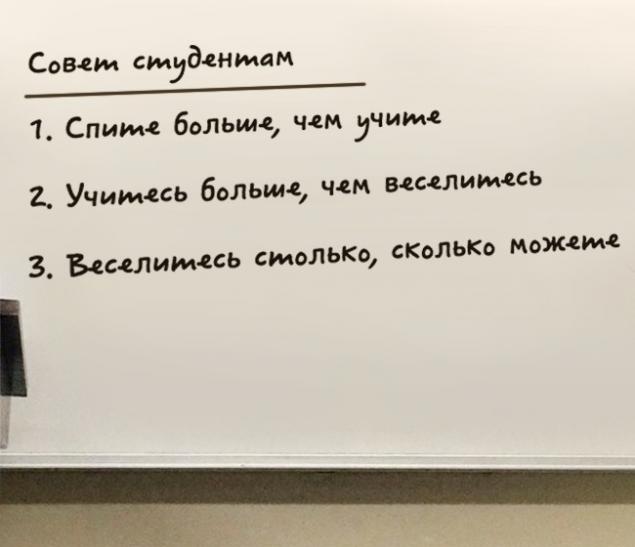 Совет студентам
1. Спите больше, чем учите
2. Учитесь больше, чем веселитесь
3. Веселитесь столько, сколько можете